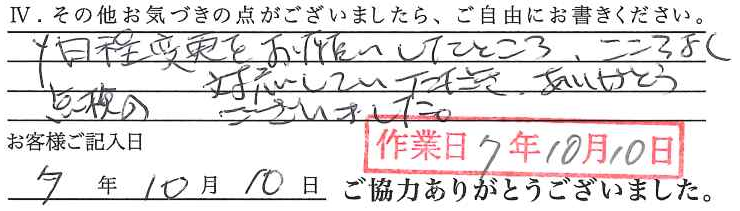 Ⅳ．その他お気づきの点がございましたら、ご自由にお書きください。
日程変更をお願いしたところ、こころよく
点検の 対応していただき、ありがとう
ございました。
お客様ご記入日
作業日 7年10月10日
7 年 10 月 10 日 ご協力ありがとうございました。